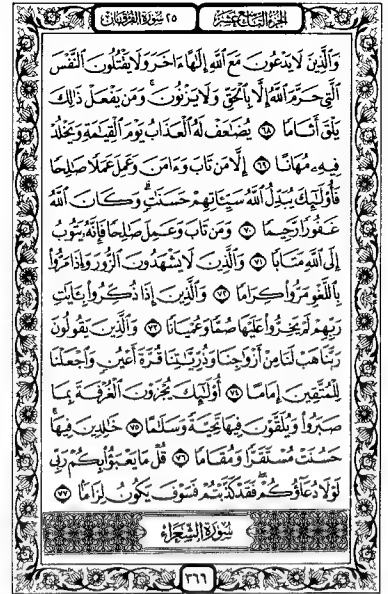 الجزء التاسع عشر ٢٥ سورة الفرقان
وَالَّذِينَ لَا يَدْعُونَ مَعَ اللَّهِ إِلَٰهًا ءَاخَرَ وَلَا يَقْتُلُونَ النَّفْسَ
الَّتِي حَرَّمَ اللَّهُ إِلَّا بِالْحَقِّ وَلَا يَزْنُونَ ۚ وَمَن يَفْعَلْ ذَٰلِكَ
يَلْقَ أَثَامًا ٦٨ يُضَٰعَفْ لَهُ الْعَذَابُ يَوْمَ الْقِيَٰمَةِ وَيَخْلُدْ
فِيهِۦ مُهَانًا ٦٩ إِلَّا مَن تَابَ وَءَامَنَ وَعَمِلَ عَمَلًا صَٰلِحًا
فَأُو۟لَٰٓئِكَ يُبَدِّلُ اللَّهُ سَيِّـَٔاتِهِمْ حَسَنَٰتٍ ۗ وَكَانَ اللَّهُ
غَفُورًا رَّحِيمًا ٧٠ وَمَن تَابَ وَعَمِلَ صَٰلِحًا فَإِنَّهُۥ يَتُوبُ
إِلَى اللَّهِ مَتَابًا ٧١ وَالَّذِينَ لَا يَشْهَدُونَ الزُّورَ وَإِذَا مَرُّوا۟
بِاللَّغْوِ مَرُّوا۟ كِرَامًا ٧٢ وَالَّذِينَ إِذَا ذُكِّرُوا۟ بِـَٔايَٰتِ
رَبِّهِمْ لَمْ يَخِرُّوا۟ عَلَيْهَا صُمًّا وَعُمْيَانًا ٧٣ وَالَّذِينَ يَقُولُونَ
رَبَّنَا هَبْ لَنَا مِنْ أَزْوَٰجِنَا وَذُرِّيَّٰتِنَا قُرَّةَ أَعْيُنٍ وَاجْعَلْنَا
لِلْمُتَّقِينَ إِمَامًا ٧٤ أُو۟لَٰٓئِكَ يُجْزَوْنَ الْغُرْفَةَ بِمَا
صَبَرُوا۟ وَيُلَقَّوْنَ فِيهَا تَحِيَّةً وَسَلَٰمًا ٧٥ خَٰلِدِينَ فِيهَا ۚ
حَسُنَتْ مُسْتَقَرًّا وَمُقَامًا ٧٦ قُلْ مَا يَعْبَؤُا۟ بِكُمْ رَبِّي
لَوْلَا دُعَاؤُكُمْ ۖ فَقَدْ كَذَّبْتُمْ فَسَوْفَ يَكُونُ لِزَامًا ٧٧
سورة الشعراء
٣٦٦